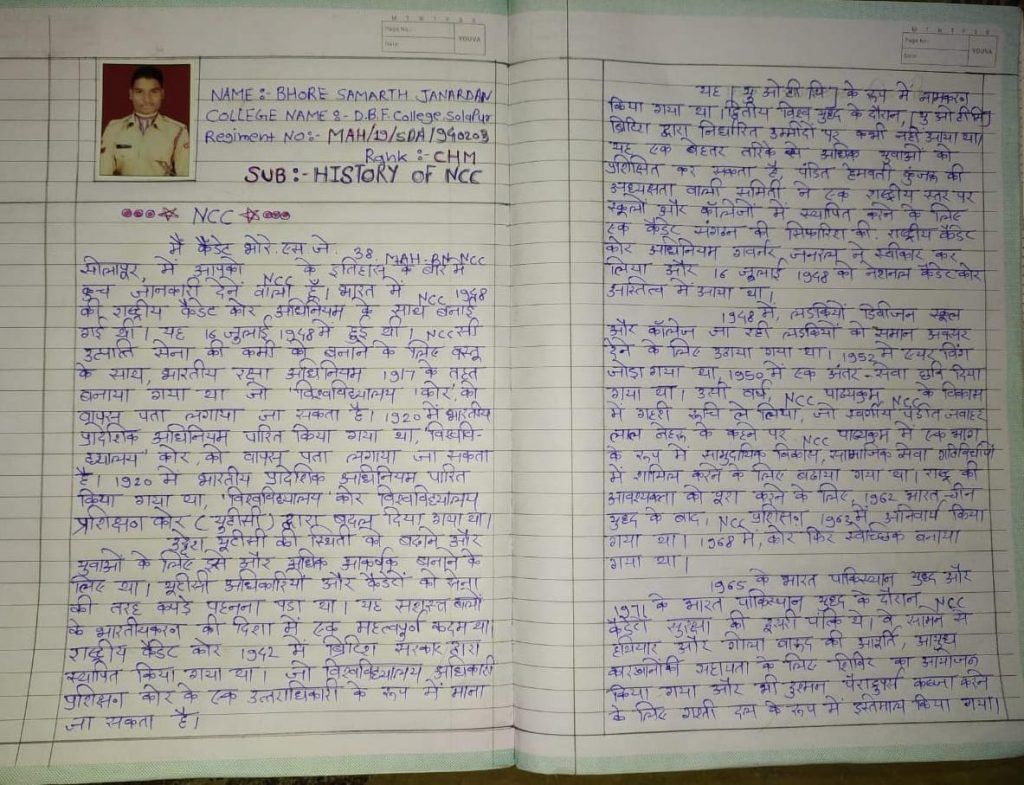 M T W T F S S
Page No.:
Date:
YOUVA
NAME:- BHORE SAMARTH JANARDAN
COLLEGE NAME :- D.B.F. College, Solapur
Regiment NO:- MAH/19/SDA/940203
Rank :- CHM
SUB :- HISTORY OF NCC
NCC
मै कैडेट भोरे. एस. जे. 38, MAH-BN-NCC
सोलापुर, में आपको NCC के इतिहास के बारे में
कुच जानकारी देने वाला हूँ। भारत में NCC 1948
की राष्ट्रीय कैडेट कोर, अधिनियम के साथ बनाई
गई थी। यह 16 जुलाई 1948 मे हुई थी। NCC सी
उत्पत्ति सेना की कमी को बनाने के लिए वस्तू
के साथ, भारतीय रक्षा अधिनियम 1917 के तहत
बनाया गया था जो 'विश्वविद्यालय' कोर, को
वापस पता लगाया जा सकता है। 1920 मे भारतीय
प्रादेशिक अधिनियम पारित किया गया था, 'विश्ववि-
द्यालय' कोर, को वापस पता लगाया जा सकता
है। 1920 मे भारतीय प्रादेशिक अधिनियम पारित
किया गया था, 'विश्वविद्यालय' कोर विश्वविद्यालय
प्रशिक्षण कोर (यूटीसी) द्वारा बदल दिया गया था।
उद्देश यूटीसी की स्थिती को बढाने और
युवाओं के लिए इसे और अधिक आकर्षक बनाने के
लिए था। यूटीसी अधिकारियों और कैडेटों को सेना
की तरह कपडे पहनना पडा था। यह सशस्त्र बालों
के भारतीयकरण की दिशा में एक महत्वपूर्ण कदम था।
राष्ट्रीय कैडेट कोर 1942 में ब्रिटिश सरकार द्वारा
स्थापित किया गया था। जो विश्वविद्यालय अधिकारी
प्रशिक्षण कोर के एक उत्तराधिकारी के रूप में माना
जा सकता है।
M T W T F S S
Page No.:
Date:
YOUVA
यह। यू ओ टी सि। के रूप में नामकरन
किया गया था। द्वितीय विश्व युद्ध के दौरान, यु ओ टी सि
ब्रिटिश द्वारा निर्धारित उम्मीदों पर कभी नही आया था।
यह एक बेहतर तरिके से अधिक युवाओं को
प्रशिक्षित कर सकता है, पंडित हेमवती कुंजरू की
अध्यक्षता वाली समिती ने एक राष्ट्रीय स्तर पर
स्कूलों और कॉलेजों में स्थापित करने के लिए
एक कैडेट संगठन की सिफारिश की. राष्ट्रीय कैडेट
कोर अधिनियम गवर्नर जनरल ने स्वीकार कर
लिया और 16 जुलाई 1948 को नेशनल कैडेट कोर
अस्तित्व में आया था।
1948 में, लडकियों डिवीजन स्कूल
और कॉलेज जा रही लडकियों को समान अवसर
देने के लिए उठाया गया था। 1952 मे एयर विंग
जोडा गया था, 1950 में एक अंतर-सेवा छवि दिया
गया था। उसी वर्ष, NCC पाठ्यक्रम NCC के विकास
में गहरी रूचि ले लिया, जो स्वर्गीय पंडीत जवाहर
लाल नेहरू के कहने पर NCC पाठ्यक्रम में एक भाग
के रूप में सामुदायिक विकास, सामाजिक सेवा गतिविधियों
में शामिल करने के लिए बढाया गया था। राष्ट्र की
आवश्यक्ता को पूरा करने के लिए, 1962 भारत-चीन
युध्द के बाद, NCC प्रशिक्षण 1963 में अनिवार्य किया
गया था। 1968 में, कोर फिर स्वैच्छिक बनाया
गया था।
1965 के भारत पाकिस्थान युध्द और
1971 के भारत पाकिस्थान युध्द के दौरान, NCC
कैडेटों सुरक्षा की दुसरी पंक्ति थे। वे सामने से
हथियार और गोला बारूद की आपूर्ति, आयुध
कारखानोंकी सहायता के लिए शिविर का आयोजन
किया गया और भी दुश्मन पैराटुपर्स कब्जा करने
के लिए गश्ती दल के रूप में इस्तेमाल किया गया।